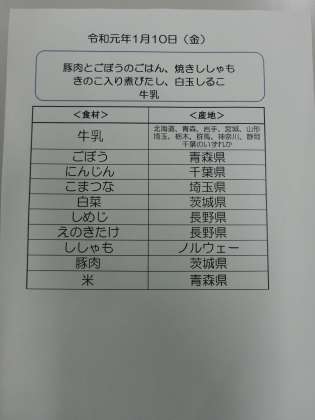 令和元年1月10日（金）
豚肉とごぼうのごはん、焼きししゃも
きのこ入り煮びたし、白玉しるこ
牛乳
＜食材＞ ＜産地＞
牛乳 北海道、青森、岩手、宮城、山形
埼玉、栃木、群馬、神奈川、静岡
千葉のいずれか
ごぼう 青森県
にんじん 千葉県
こまつな 埼玉県
白菜 茨城県
しめじ 長野県
えのきたけ 長野県
ししゃも ノルウェー
豚肉 茨城県
米 青森県